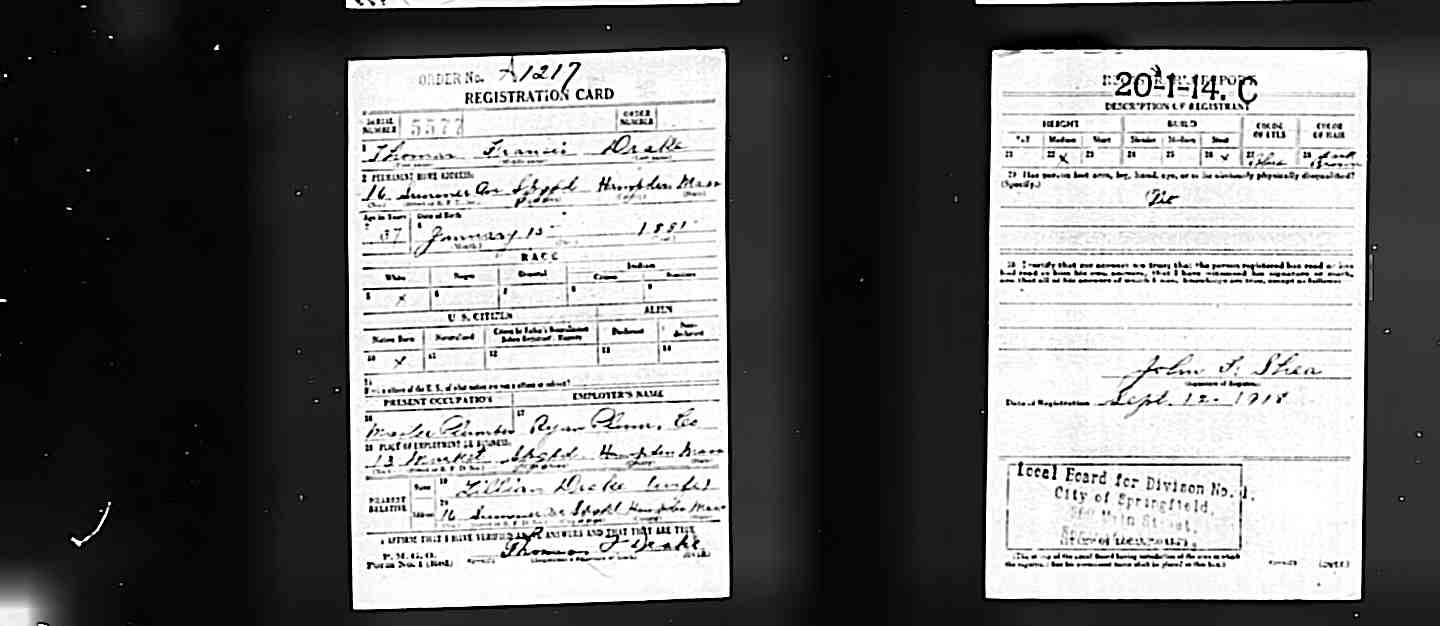 ORDER No. A1217
REGISTRATION CARD
SERIAL NUMBER 5577 ORDER NUMBER
1 Thomas Francis Drake
2 PERMANENT HOME ADDRESS:
16 Summer Av Spgfd Hampden Mass
Age in Years Date of Birth
37 January 15 1881
(Month.) (Day.) (Year.)
RACE
White Negro Oriental Indian
Citizen
5 X 6 7 8 9
U. S. CITIZEN ALIEN
Native Born Naturalized Citizen by Father's Naturalization Before Registrant's Majority Declarant Non-declarant
10 X 11 12 13 14
15
If not a citizen of the U. S., of what nation are you a citizen or subject?
PRESENT OCCUPATION EMPLOYER'S NAME
16 Master Plumber 17 Ryan Plum. Co
18 PLACE OF EMPLOYMENT OR BUSINESS:
13 Market Spgfd Hampden Mass
NEAREST RELATIVE Name 19 Lillian Drake (wife)
Address 20 16 Summer Av Spgfd Hampden Mass
I AFFIRM THAT I HAVE VERIFIED ABOVE ANSWERS AND THAT THEY ARE TRUE
P. M. G. O.
Form No. 1 (Red) Thomas F Drake
20-1-14. C
DESCRIPTION OF REGISTRANT
HEIGHT BUILD COLOR OF EYES COLOR OF HAIR
Tall Medium Short Slender Medium Stout
21 22 X 23 24 25 26 X 27 Blue 28 Dark Brown
29 Has person lost arm, leg, hand, eye, or is he obviously physically disqualified?
(Specify.)
No
30 I certify that my answers are true; that the person registered has read or has had read to him his own answers; that I have witnessed his signature or mark, and that all of his answers of which I have knowledge are true, except as follows:
John F. Shea
(Signature of Registrar)
Date of Registration Sept. 12 - 1918
Local Board for Divison No. 1.
City of Springfield,
Main Street,
(The stamp of the Local Board having jurisdiction of the area in which
the registrant has his permanent home shall be placed in this box.)
(OVER)